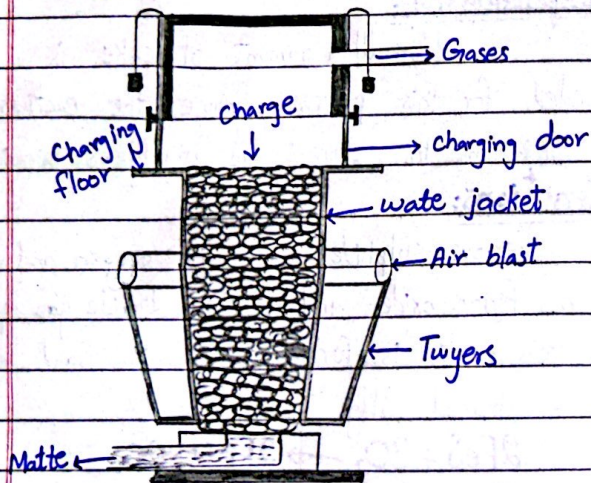 Gases
Charge
Charging
floor
charging door
wate jacket
Air blast
Twyers
Matte